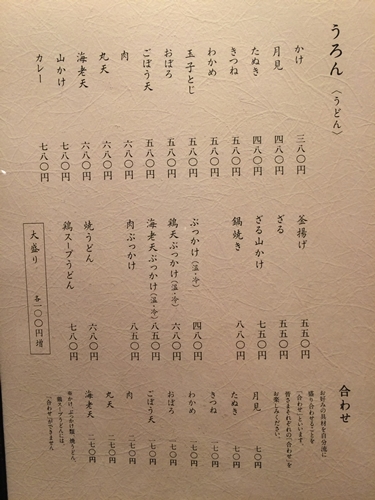 うろん〈うどん〉
かけ 三八〇円
月見 四八〇円
たぬき 四八〇円
きつね 五八〇円
わかめ 五八〇円
玉子とじ 五八〇円
おぼろ 五八〇円
ごぼう天 五八〇円
肉 六八〇円
丸天 六八〇円
海老天 六八〇円
山かけ 七八〇円
カレー 七八〇円
釜揚げ 五五〇円
ざる 五五〇円
ざる山かけ 七五〇円
鍋焼き 八八〇円
ぶっかけ(温・冷) 四八〇円
鶏天ぶっかけ(温・冷) 六八〇円
海老天ぶっかけ(温・冷) 八五〇円
肉ぶっかけ 八五〇円
焼うどん 六八〇円
鶏スープうどん 七八〇円
大盛り 各一〇〇円増
合わせ
お好みの具材を自分流に
盛り合わせることを
「合わせ」といいます。
皆さまそれぞれの「合わせ」を
お楽しみください。
月見 七〇円
たぬき 七〇円
きつね 一七〇円
わかめ 一七〇円
おぼろ 一七〇円
ごぼう天 一七〇円
肉 二七〇円
丸天 二七〇円
海老天 二七〇円
ぶっかけ類、焼うどん、
鶏スープうどんには、
「合わせ」ができません